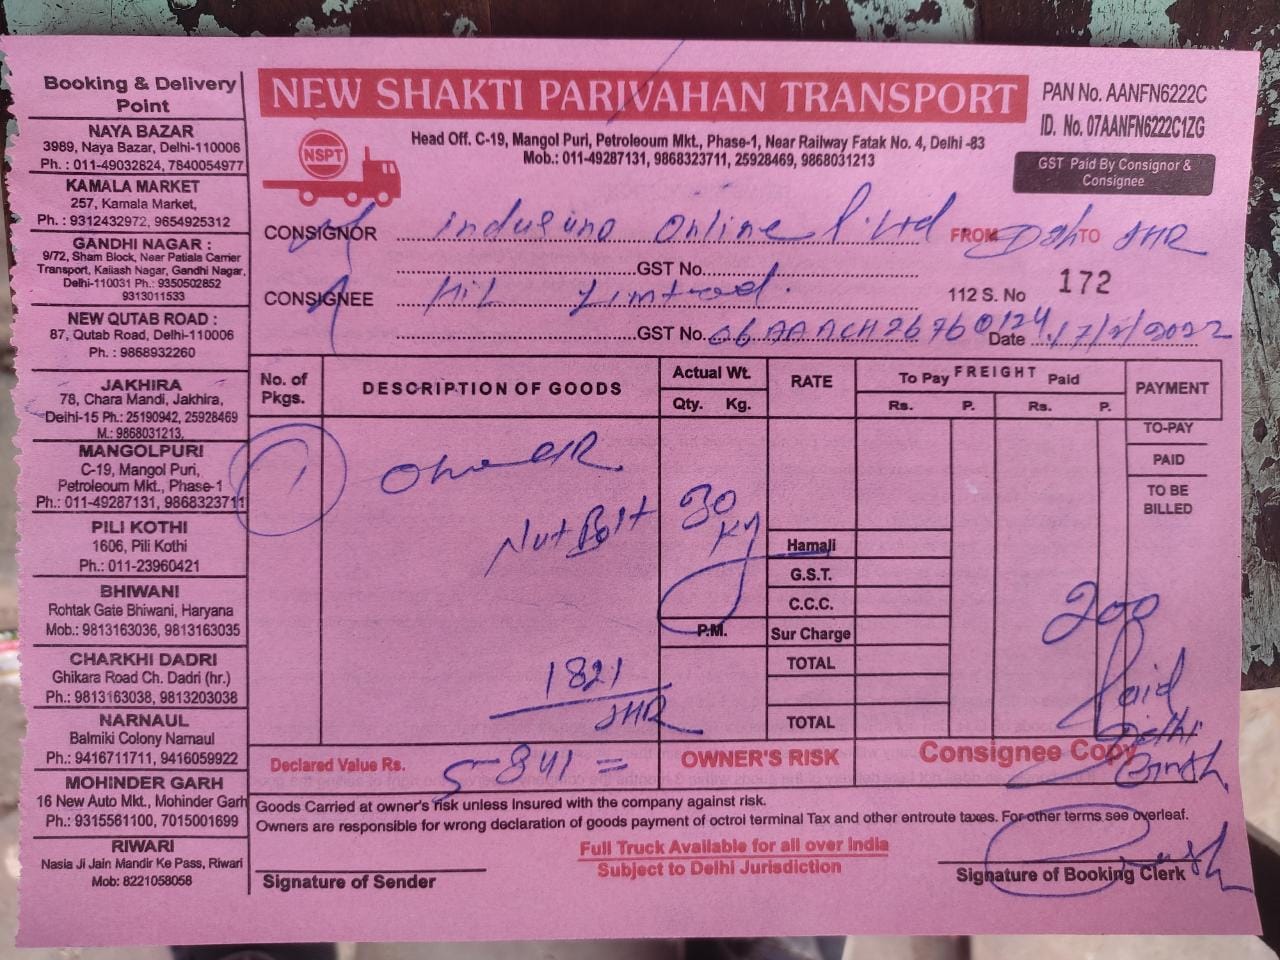 Booking & Delivery
Point
NAYA BAZAR
3989, Naya Bazar, Delhi-110006
Ph. : 011-49032824, 7840054977
KAMALA MARKET
257, Kamala Market,
Ph. : 9312432972, 9654925312
GANDHI NAGAR :
9/72, Sham Block, Near Patiala Carrier
Transport, Kailash Nagar, Gandhi Nagar,
Delhi-110031 Ph.: 9350502852
9313011533
NEW QUTAB ROAD :
87, Qutab Road, Delhi-110006
Ph. : 9868932260
JAKHIRA
78, Chara Mandi, Jakhira,
Delhi-15 Ph.: 25190942, 25928469
M.: 9868031213,
MANGOLPURI
C-19, Mangol Puri,
Petroleoum Mkt., Phase-1
Ph.: 011-49287131, 9868323711
PILI KOTHI
1606, Pili Kothi
Ph.: 011-23960421
BHIWANI
Rohtak Gate Bhiwani, Haryana
Mob.: 9813163036, 9813163035
CHARKHI DADRI
Ghikara Road Ch. Dadri (hr.)
Ph.: 9813163038, 9813203038
NARNAUL
Balmiki Colony Narnaul
Ph.: 9416711711, 9416059922
MOHINDER GARH
16 New Auto Mkt., Mohinder Garh
Ph.: 9315561100, 7015001699
RIWARI
Nasia Ji Jain Mandir Ke Pass, Riwari
Mob: 8221058058
NEW SHAKTI PARIVAHAN TRANSPORT
PAN No. AANFN6222C
ID. No. 07AANFN6222C1ZG
NSPT
Head Off. C-19, Mangol Puri, Petroleoum Mkt., Phase-1, Near Railway Fatak No. 4, Delhi -83
Mob.: 011-49287131, 9868323711, 25928469, 9868031213
GST Paid By Consignor &
Consignee
CONSIGNOR Online P. Ltd FROM TO JHR
GST No.
CONSIGNEE HiL 112 S. No 172
GST No. 06AAACH2676 Date 17/2/2022
No. of Pkgs. DESCRIPTION OF GOODS Actual Wt. Qty. Kg. RATE FREIGHT To Pay Rs. P. Paid Rs. P. PAYMENT
TO-PAY
PAID
TO BE
BILLED
1
Nut Bolt 30
Kg
Hamali
G.S.T.
C.C.C.
200
P.M. Sur Charge
TOTAL
1821
JHR
Paid
Delhi
TOTAL
Declared Value Rs. 5841 = OWNER'S RISK Consignee Copy
Goods Carried at owner's risk unless Insured with the company against risk.
Owners are responsible for wrong declaration of goods payment of octroi terminal Tax and other entroute taxes. For other terms see overleaf.
Full Truck Available for all over India
Subject to Delhi Jurisdiction
Signature of Sender
Signature of Booking Clerk